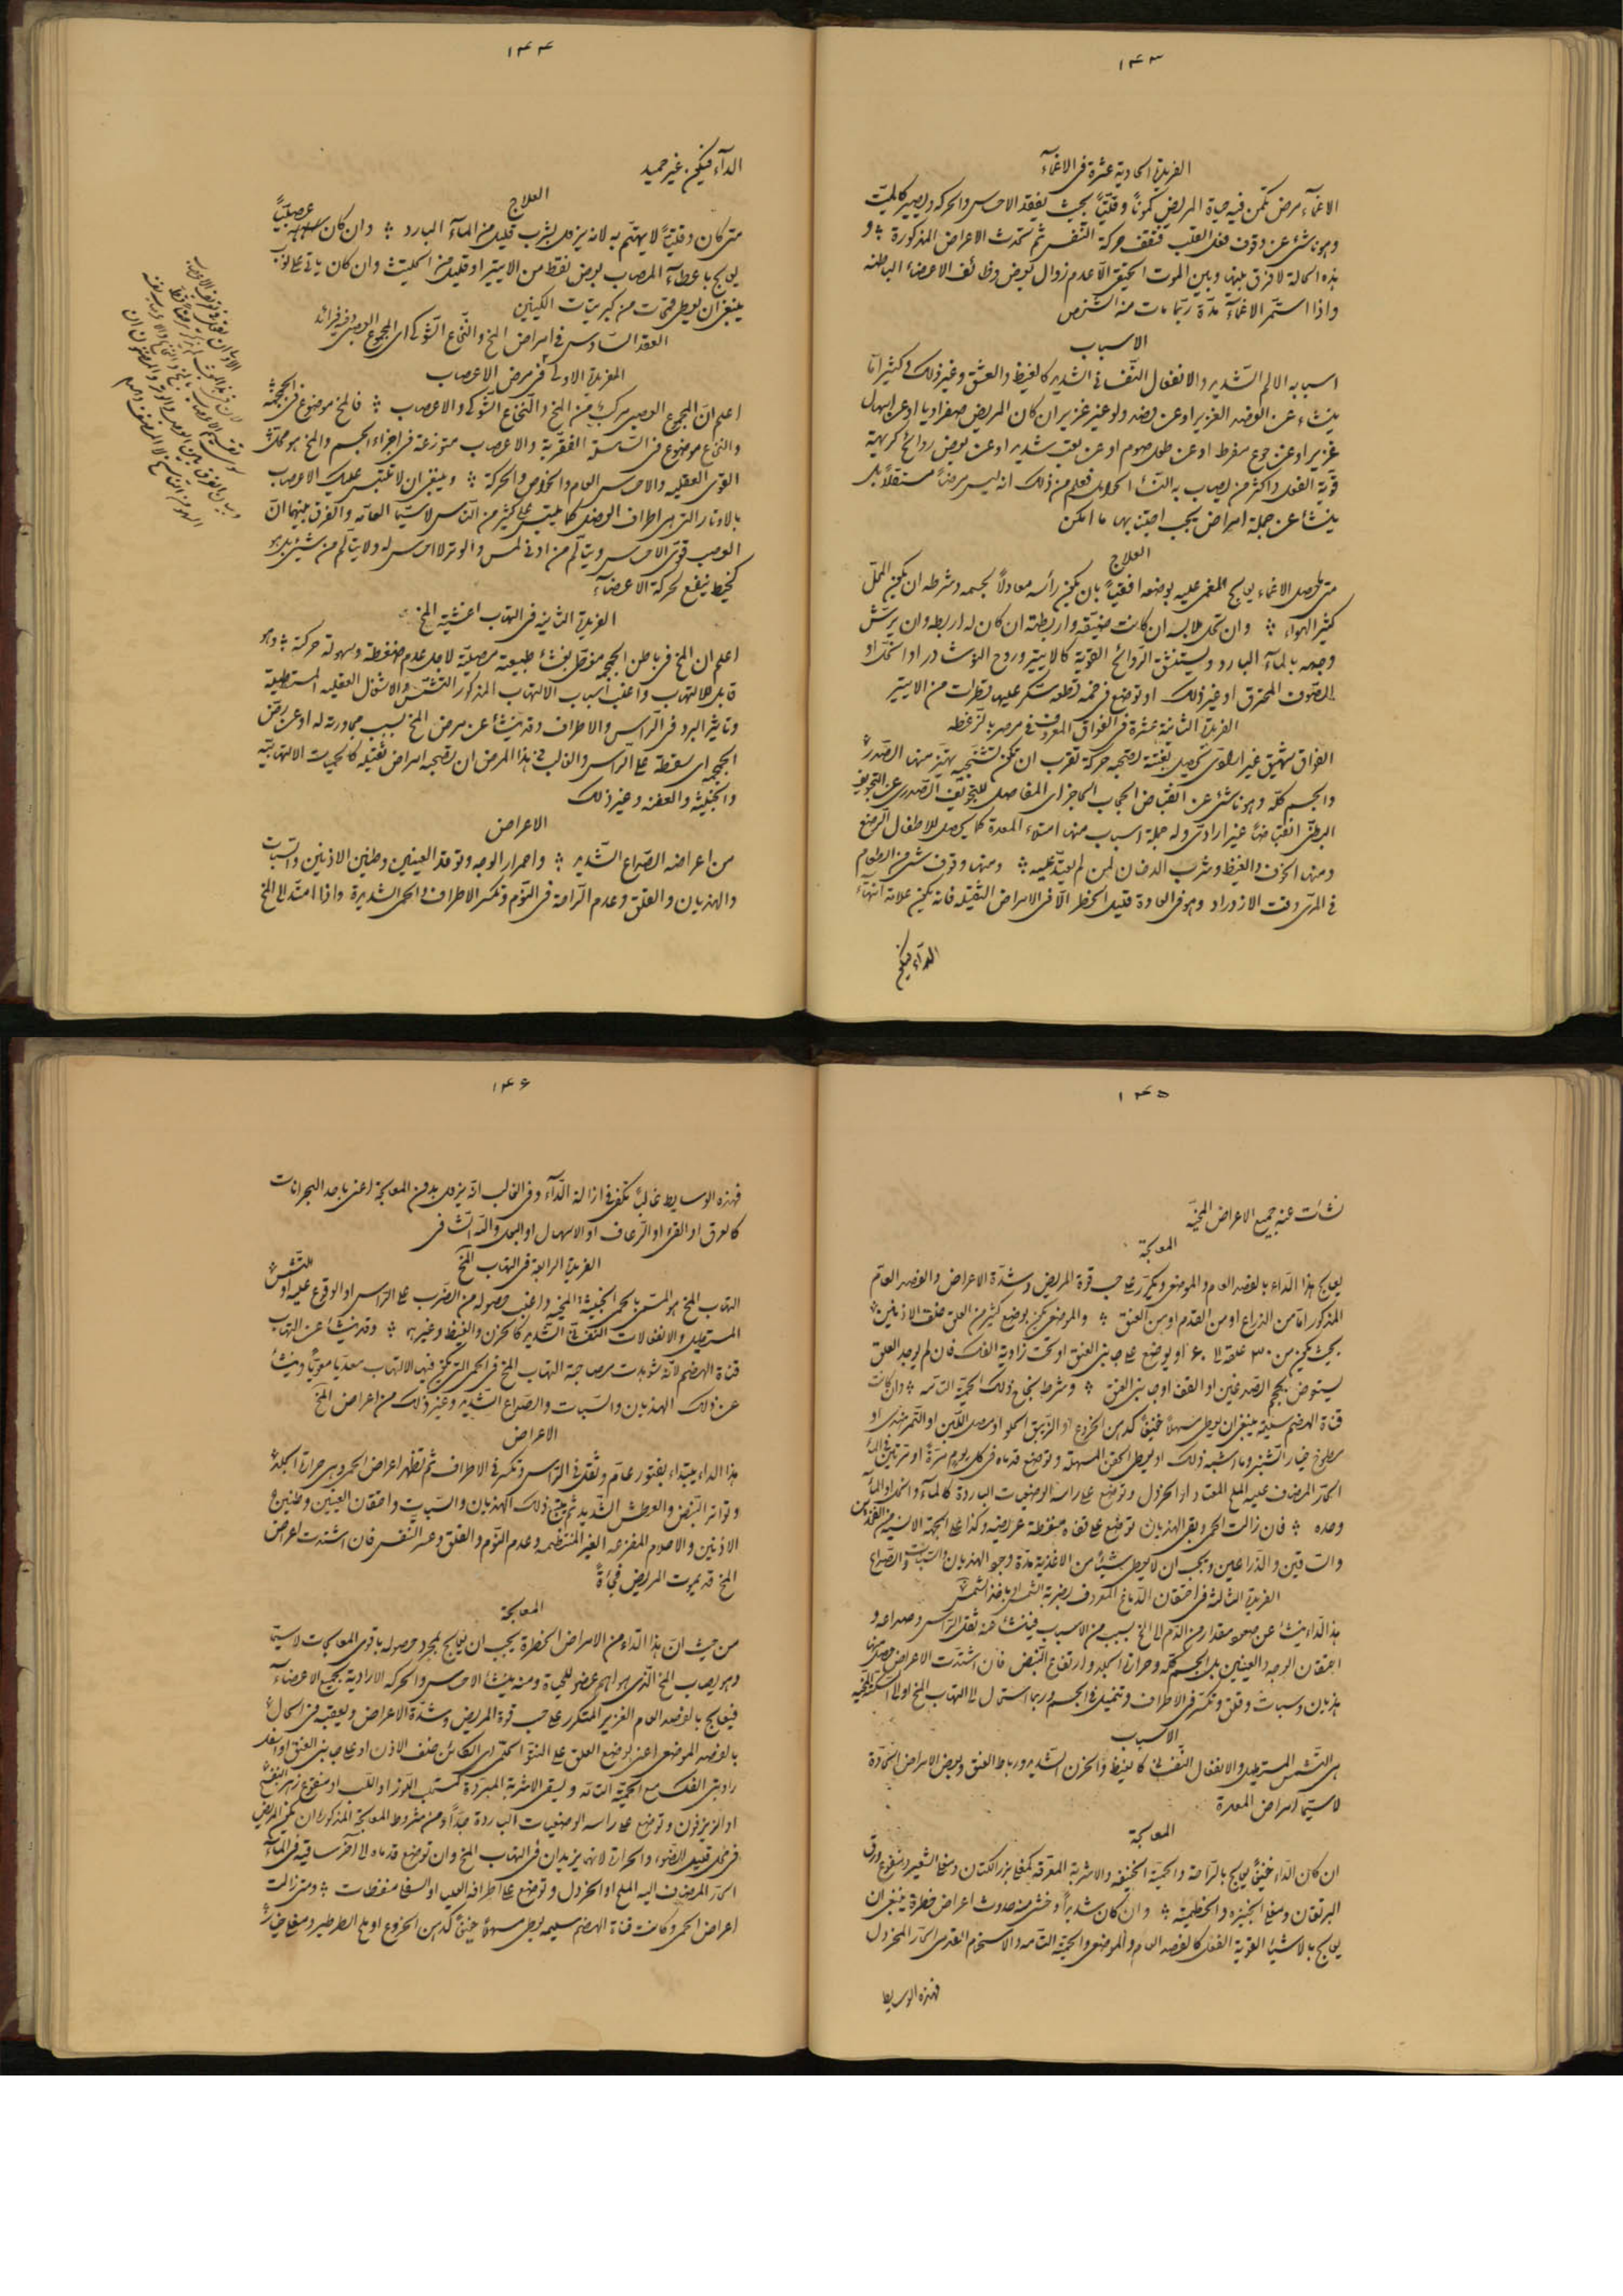 ١٤٣
الفريدة الحادية عشرة في الاغمآء
الاغمآء مرض تكمن فيه حياة المريض كمونًا وقتيًّا بحيث يفقد الاحساس والحركة ويصير كالميّت
وهو ناشئ عن وقوف فعل القلب فتقف حركة التنفس ثم تحدث الاعراض المذكورة ؞ و
بهذه الحالة لا فرق بينها وبين الموت الحقيقي الّا عدم زوال بعض وظائف الاعضاء الباطنه
واذا استمر الاغمآء مدّة ربّما مات منه الشخص
الاسباب
اسبابه الالم الشديد والانفعال النّفساني الشديد كالغيظ والعشق وغير ذلك وكثيرًا ما
ينشاء عن الفصد الغزير او عن فصد ولو غير غزير ان كان المريض صفراويا او عن اسهال
غزير او عن جوع مفرط او عن طول صوم او عن تعب شديد او عن بعض روائح كريهة
قوية الفعل واكثر من يصاب به النسٓاء الحوامل فعلم من ذلك انه ليس مرضًا مستقلًا بل
ينشأ عن جملة امراض يجب اجتنابها ما امكن
العلاج
متى حصل الاغماء يعالج المغمى عليه بوضعه افقيّا بان يكون رأسه معادلًا لجسمه وشرطه ان يكون المحلّ
كثير الهوآء ؞ وان تحل ملابسه ان كانت ضيقه واربطته ان كان له اربطه وان يرشّ
وجهه بالمآء البارد ويستنشق الرّوائح القوّية كالايتير وروح النوشادر او الخل او
الصّوف المحترق او غير ذلك او توضع في فمه قطعة سكر عليها قطرات من الايتير
الفريدة الثانية عشرة في الفواق المعروف في مصر بالزغطه
الفواق شهيق غير ارادى يحصل بغتة تصحبه حركة تقرب ان تكون تشنّجيه يهتز منها الصّدر
والجسم كلّه وهو ناشئ عن انقباض الحجاب الحاجز اى الفاصل للتجويف الصّدرى عن التجويف
البطنّى انقباضًا غير ارادىّ وله جملة اسباب منها امتلاء المعدة كما يحصل للاطفال الرضع
ومنها الخوف والغيظ وشرب الدخان لمن لم يتعوّد عليه ؞ ومنها وقوف شئ من الطعام
في المرّى وقت الازدراد وهو في العادة قليل الخطر الّا في الامراض الثقيله فانه يكون علامة انتهآء
الدآء فيكون
١٤٤
الدآء فيكون غير حميد
العلاج
متى كان وقتيّا لا يهتم به لانه يزول بشرب قليل من المآء البارد ؞ وان كان عصبيّا
يعالج باعطآء المصاب بعض نقط من الايتير او قليل من الحلتيت وان كان ياتى على نوب
ينبغى ان يعطى قمحات من كبريتات الكينين
العقد السّادس في امراض المخ والنّخاع الشّوكى اى المجموع العصبى وفيه فرائد
الفريدة الاولى في مرض الاعصاب
اعلم انّ المجموع العصبى مركّب من المخ والنّخاع الشّوكى والاعصاب ؞ فالمخ موضوع في الجمجمة
والنّخاع موضوع في السّلسلة الفقريّة والاعصاب متوزعة في اجزاء الجسم والمخ هو محل
القوى العقليه والاحساس العام والخاص والحركة ؞ وينبغى ان لا تلتبس عليك الاعصاب
بالاوتار التى هى اطراف العضل كما يلتبس على كثير من الناس لاسيّما العامّه والفرق بينهما انّ
العصب قوىّ الاحساس ويتألّم من ادنى لمس والوتر لا احساس له ولا يتألّم من شئ بل هو
كخيط ينفع لحركة الاعضآء
الفريدة الثانية في التهاب اغشية المخ
اعلم ان المخ في باطن الجمجمه
قابل للالتهاب واغلب اسباب الالتهاب المذكور التشمّس والاشغال العقليه المستطيلة
وتاثير البرد في الرّأس والاطراف وقد ينشأ عن مرض المخ بسبب مجاورته له او عن رضّ
الجمجمه اى سقطة على الرّأس والغالب في هذا المرض ان تصحبه امراض ثقيله كالحميات الالتهابيّه
والخبيثه والعفنه وغير ذلك
الاعراض
من اعراضه الصّداع الشّديد ؞ واحمرار الوجه وتوقد العينين وطنين الاذنين والسّبات
والهذيان والقلق وعدم الرّاحة في النّوم وتكسر الاطراف والحمى الشديدة واذا امتدّ الى المخ
١٤٥
نشأت عنه جميع الاعراض المخيّه
المعالجة
يعالج هذا الدّاء بالفصد العام والموضعى ويكرّر على حسب قوة المريض وشدّة الاعراض والفصد العامّ
المذكور امّا من الذراع او من القدم او من العنق ؞ والموضعى يكون بوضع كثير من العلق خلف الاذنين
بحيث يكون من ٣٠ علقة الى ٦٠ او يوضع على جانبى العنق او تحت زاوية الفك فان لم يوجد العلق
يستعوض بحجم الصّدغين او القفا او جانبى العنق ؞ وشرط نجاح ذلك الحمية التّامه ؞ وان كانت
قناة الهضم سليمه ينبغى ان يعطى مسهلًا خفيفًا كدهن الخروع او الزيبق الحلو او مصل اللّبن او التّمر هندى او
مطبوخ خيار الشنبر وما اشبه ذلك او يعطى الحقن المسهلة وتوضع قدماه في كل يوم مرّة او مرّتين في المآء
الحآر المضاف عليه الملح المعتاد او الخردل وتوضع على راسه الوضعيات الباردة كالمآء والخل او المآء
وحده ؞ فان زالت الحمى وبقى الهذيان توضع على قفاه منفطة عريضه وكذا على الجهة الانسيه من الفخذين
والساقين والذراعين ويجب ان لا يعطى شيئًا من الاغذية مدّة وجود الهذيان والسّبات والصّداع
الفريدة الثالثة في احتقان الدّماغ المعروف بضربة الشمس او باخذ الشمس
هذا الدّاء ينشأ عن صعود مقدار من الدّم الى المخ بسبب من الاسباب فينشأ عنه ثقل الرّاس وصداعه و
احتقان الوجه والعينين بل الجسم كلّه وحرارة الجلد وارتفاع النّبض فان اشتدّت الاعراض حصل منها
هذيان وسبات وقلق وتكسّر في الاطراف وتنميل في الجسم وربما استحال الى التهاب المخ او الى السّكتة المخّيه
الاسباب
هى التّشمس المستطيل والانفعال النّفسانى كالغيظ والحزن الشّديد ورباط العنق وبعض الامراض الحآدة
لاسيّما امراض المعدة
المعالجة
ان كان الدّاء خفيفًا يعالج بالرّاحة والحمية الخفيفه والاشربة المعرّقه كمغلى بزر الكتّان ومغلى الشعير ومنقوع ورق
البرتقان ومغلى الخبيزه والخطميّة ؞ وان كان شديدًا وخشى منه حدوث اعراض خطرة ينبغى ان
يعالج بالاشياء القوية الفعل كالفصد العام والموضعى والحمية التّامه والاستحمام القدمى الحآر المخردل
فهذه الوسايط
١٤٦
فهذه الوسايط غالبًا تكفى في ازالة الدّآء وفي الغالب انّه يزول بدون المعالجة اعنى باحد البحرانات
كالعرق او القئ او الرّعاف او الاسهال او البول واللّه الشّافى
الفريدة الرابعة في التهاب المخ
التهاب المخ هو المسمّى بالحمى الخبيثة المخيّه واغلب حصوله من الضّرب على الرّاس او الوقوع عليه او التّشمّس
المستطيل والانفعالات النّفسانيّة الشّديده كالحزن والغيظ وغيرهما ؞ وقد ينشأ عن التهاب
قناة الهضم لانّه شوهدت مصاحبة التهاب المخ في الحمى التى يكون فيها الالتهاب معديا معويًّا وينشأ
عن ذلك الهذيان والسّبات والصّداع الشّديد وغير ذلك من اعراض المخ
الاعراض
هذا الداء يبتداء بفتور عامّ وثقل في الرّاس وتكسر في الاطراف ثم تظهر اعراض الحمى وهى حرارة الجلد
وتواتر النّبض والعطش الشّديد ثم يتبع ذلك الهذيان والسّبات واحتقان العينين وطنين
الاذنين والاحلام المفزعه الغير المنتظمه وعدم النّوم والقلق وعسر النّفس فان اشتدت اعراض
المخ قد يموت المريض فجأةً
المعالجة
من حيث انّ هذا الدّاء من الامراض الخطرة يجب ان يعالج بمجرد حصوله باقوى المعالجات لاسيّما
وهو يصاب المخ الّذى هو اهم عضو للحياة ومنه ينشأ الاحساس والحركه الارادية بجميع الاعضاء
فيعالج بالفصد العام الغزير المتكرر على حسب قوة المريض وشدّة الاعراض ويعقبه في الحال
بالفصد الموضعى اعنى بوضع العلق على النتوّ الحلمى اى الكائن خلف الاذن او على جانبى العنق او اسفل
زاويتى الفك مع الحمية التّامّه ويسقى الاشربة المبرّدة كمستحلب اللّوز او اللّب او منقوع زهر البنفسج
او الزيزفون وتوضع على راسه الوضعيات الباردة جدًّا ومن شروط المعالجة المذكورة ان يكون المريض
في محل قليل الضّوء والحرارة لانهما يزيدان في التهاب المخ وان توضع قدماه الى آخر ساقيه في المآء
الحار المضاف اليه الملح او الخردل وتوضع على اطرافه العليا او السفلى منفطات ؞ ومتى زالت
اعراض الحمى وكانت قناة الهضم سليمه يعطى مسهلًا خفيفًا كدهن الخروع او ملح الطرطير ومغلى